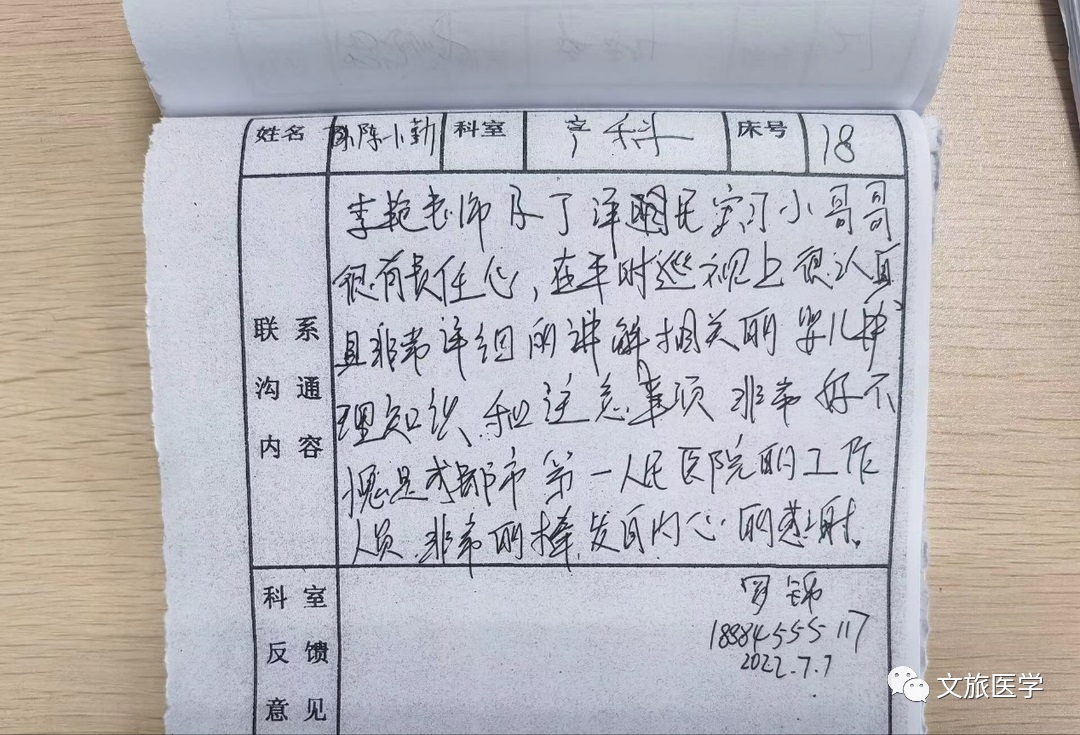 姓名 陈小勤 科室 产科 床号 18
联系
沟通
内容
李艳老师及丁洋国民实习小哥哥
很有责任心，在平时巡视上很认真
且非常详细的讲解相关的婴儿护
理知识和注意事项 非常好不
愧是成都市第一人民医院的工作
人员.非常的棒,发自内心的感谢.
科室
反馈
意见
罗锦
18884555117
2022.7.7
文旅医学